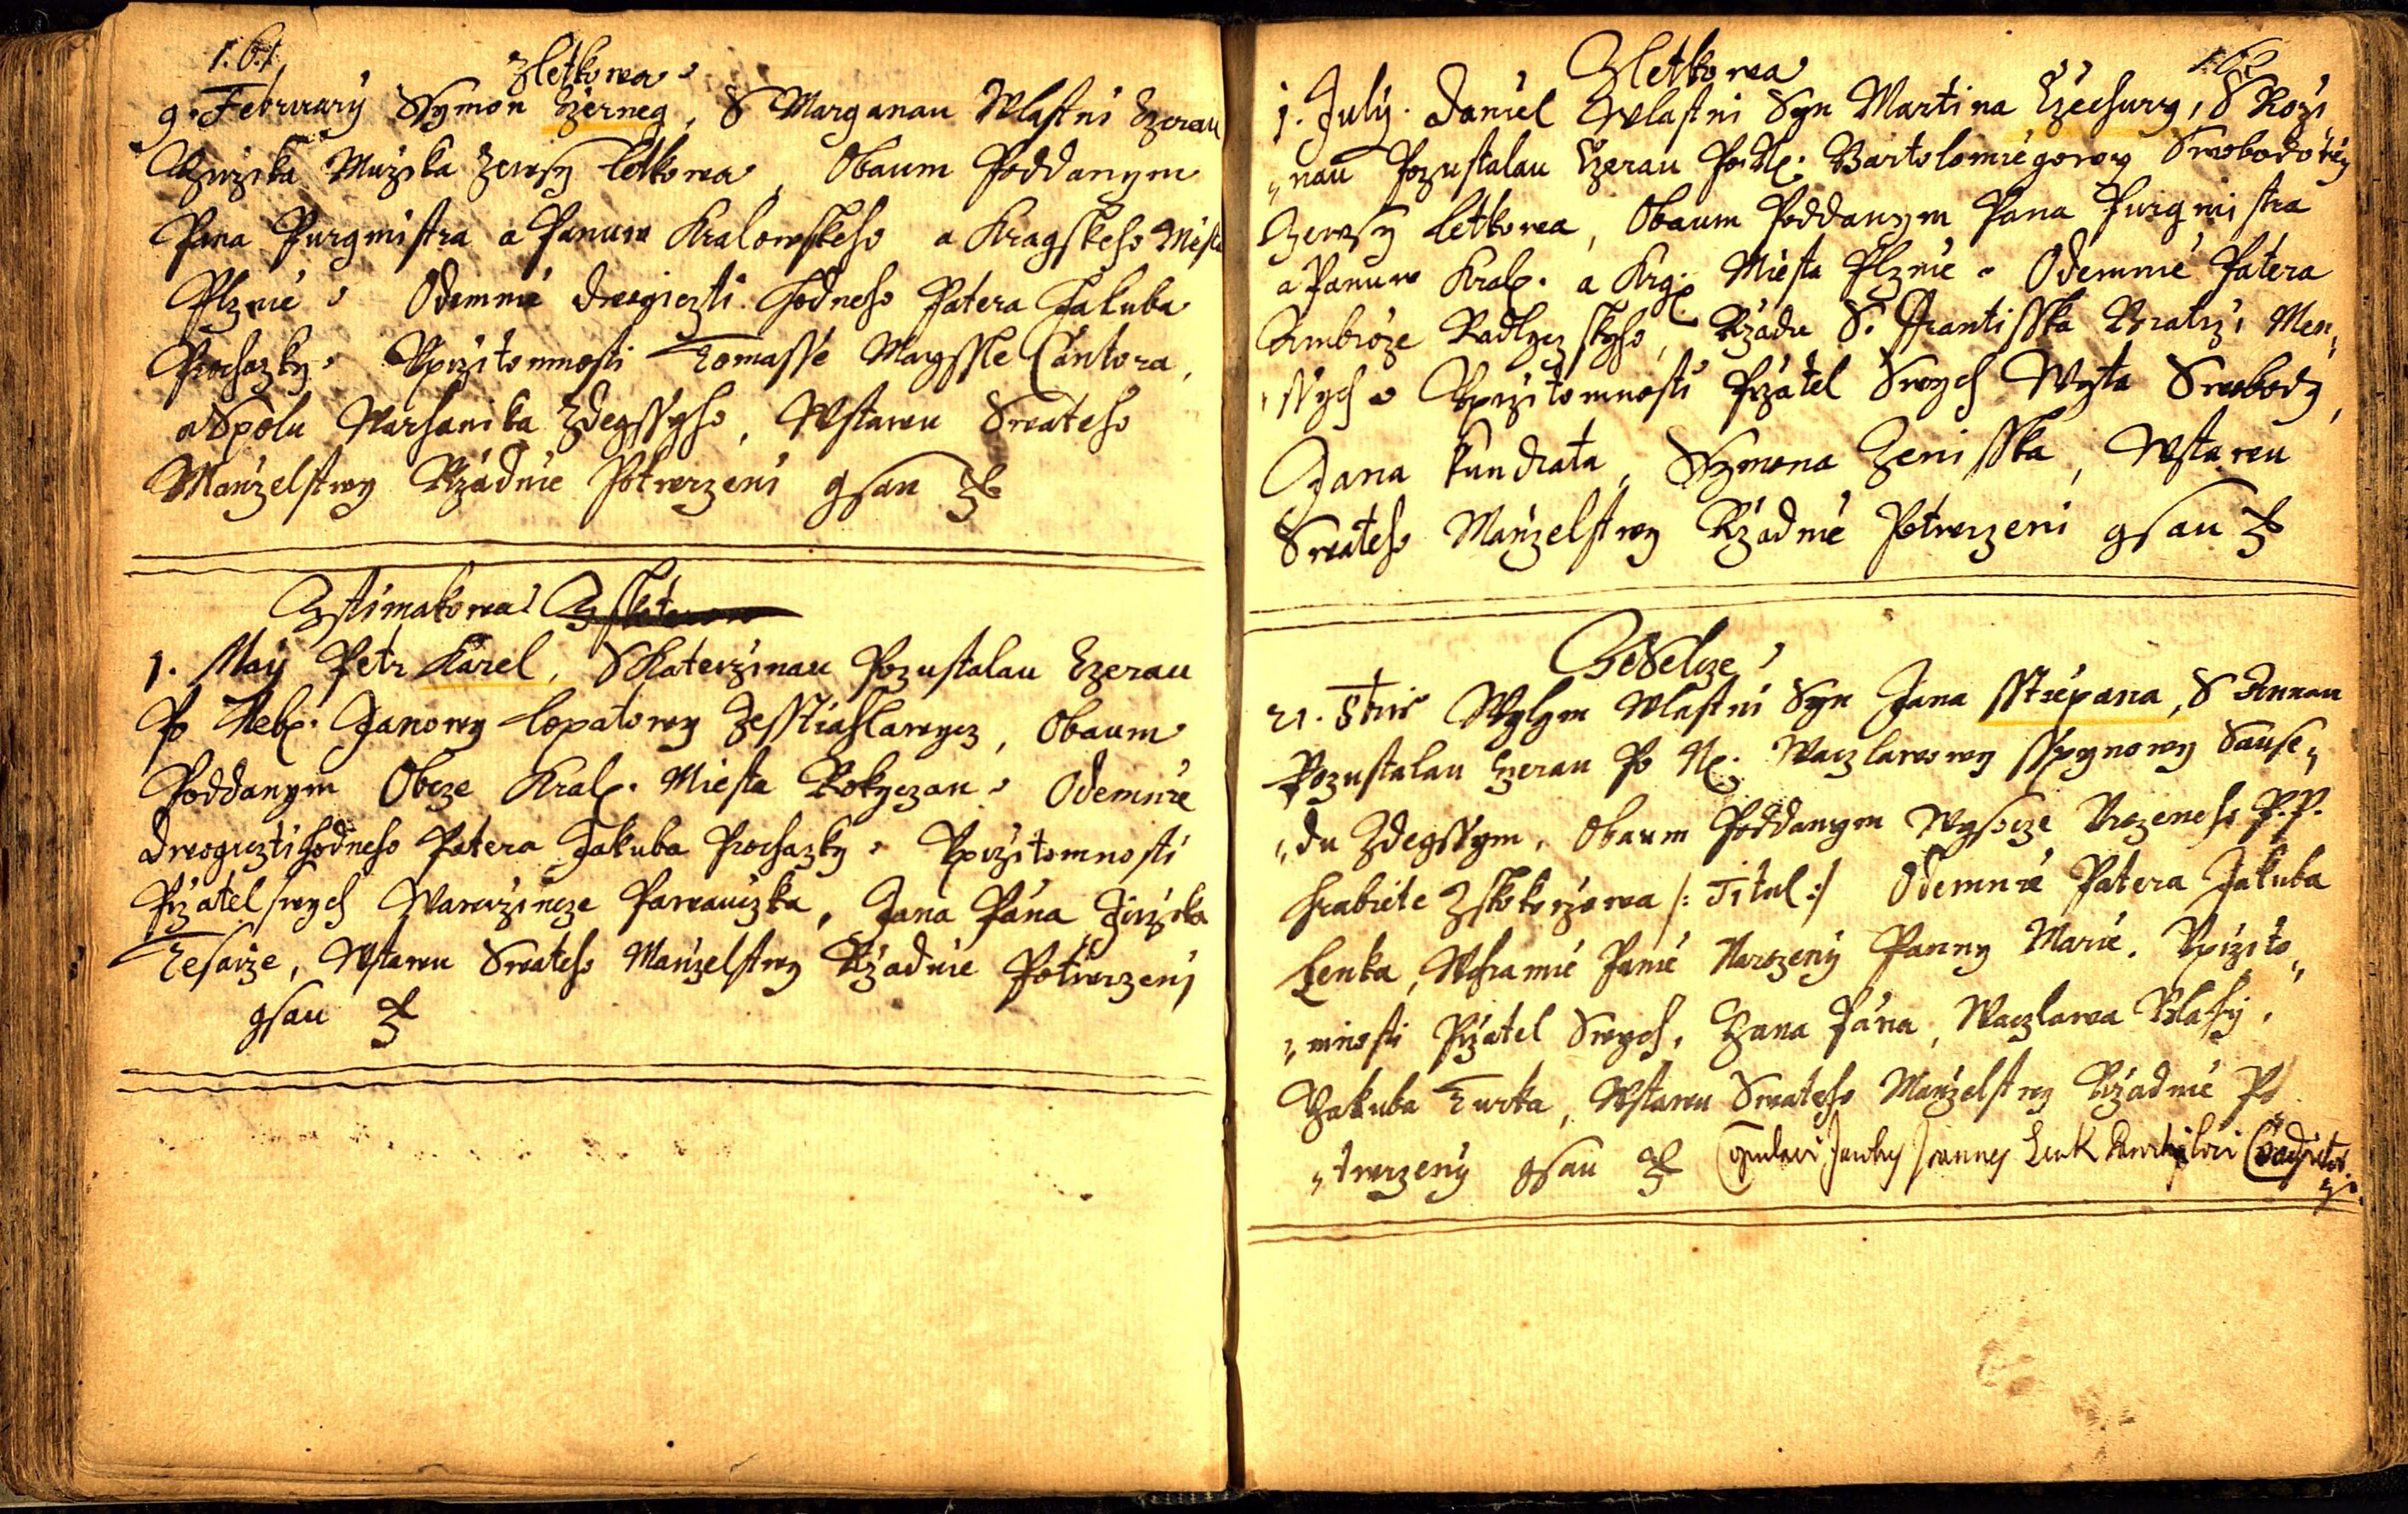 161
Zletkowa
9. February Symon Czerneg, S Marganau Wlastni Czerau
Girzika Muzika Zewsy Letkowa, Obaum Poddanym
Pana Purgmistra a Panuw Kralowskeho a Kragskeho Miesta
Plznie. Odemnie dwogiczti hodneho Patera Jakuba
Prochazky. Vprzitomnosti Tomasse Maysle Cantora,
a Spolu Warhanika Zdegssyho, Wstawu Swateho
Manzelstwy Rzadnie Potwrzeni gsau
Zstimakowa
1. May Petr Karel, S Katerzinau Pozustalau Czerau
Po Neb. Janowy Lopatowy Zesstiahlawycz, Obaum
Poddanym Obcze Kral. Miesta Rokyczan. Odemnie
dwogicztihodneho Patera Jakuba Prochazky. Vprzitomnosti
Przatel swych Wawrzincze Parauczka, Jana Pána Jirzika
Tesarze, Wstawu Swateho Manzelstwy Rzadnie Potwrzeni
gsau
Zletkowa
1. July. Daniel Wlastni Syn Martina Czechury, S Rozi
nau Pozustalau Czerau Po N. Bartolomiegowy Swobodowy
Zewsy Letkowa, Obaum Poddanym Pana Purgmistra
a Panuw Kral. a Krg. Miesta Plznie. Odemnie Patera
Ambroze Radlyczskyho, Rzadu S. Frantisska Bratrzi Men
ssych. Vprzitomnosti Przatel Swych Wyta Swobody,
Jana Kundrata, Symona Zenisska, Wstawu
Swateho Manzelstwy Rzadnie Potwrzeni gsau
21. 8bris Wylym Wlastni Syn Jana Sstiepana, S Annau
Pozustalau Czerau Po N. Waczlawowy Sspynowy Sause
du Zdegssym, Obaum Poddanym Wysocze Vrozeneho P. P.
Hrabiete Zskokorzowa /: Titul :/ Odemnie Patera Jakuba
Lenka, Wchramie Panie Narozeny Panny Marie. Vprzito
mnosti Przatel Swych, Jana Pána, Waczlawa Blahy,
Jakuba Turka, Wstawu Swateho Manzelstwy Rzadnie Po
twrzeny gsau